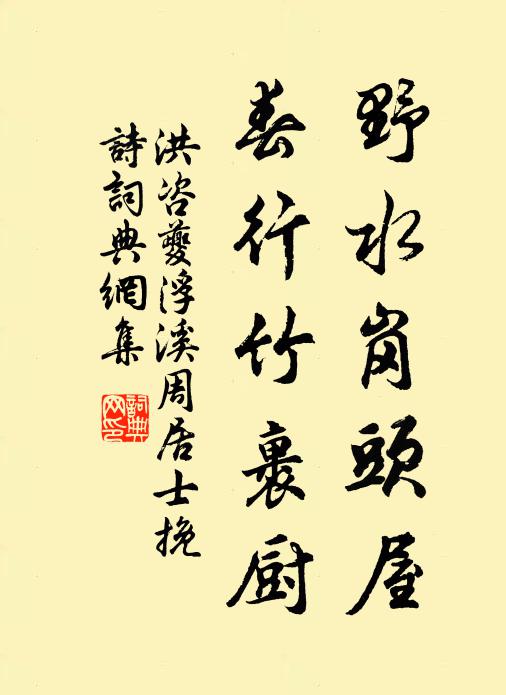 野水岗頭屋
春行竹裹厨
洪咨夔浮溪周居士挽
詩詞典網集
詞典網印